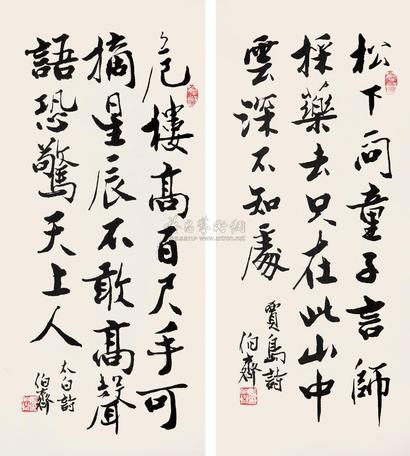 松下问童子言師
採藥去只在此山中
雲深不知處
賈島詩
伯齊
危樓高百尺手可
摘星辰不敢高聲
語恐驚天上人
太白詩
伯齊